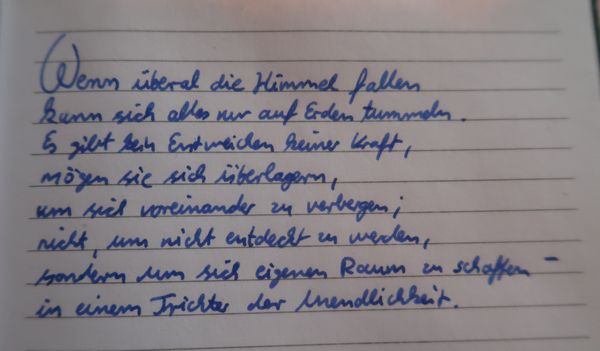 Wenn überal die Himmel fallen
kann sich alles nur auf Erden tummeln.
Es gibt kein Entweichen keiner Kraft,
mögen sie sich überlagern,
um sich voreinander zu verbergen;
nicht, um nicht entdeckt zu werden,
sondern um sich eigenen Raum zu schaffen –
in einem Trichter der Unendlichkeit.